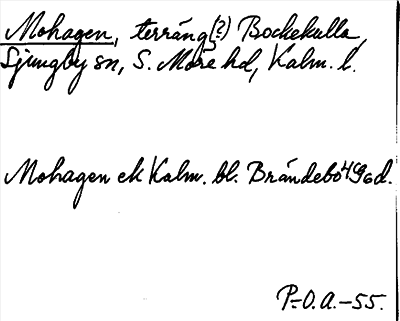 Mohagen, terräng(?) Bockekulla,
Ljungby sn, S. Möre hd, Kalm. l.
Mohagen ek Kalm. bl. Brändebo 4G6d.
P.-O.A.-55.